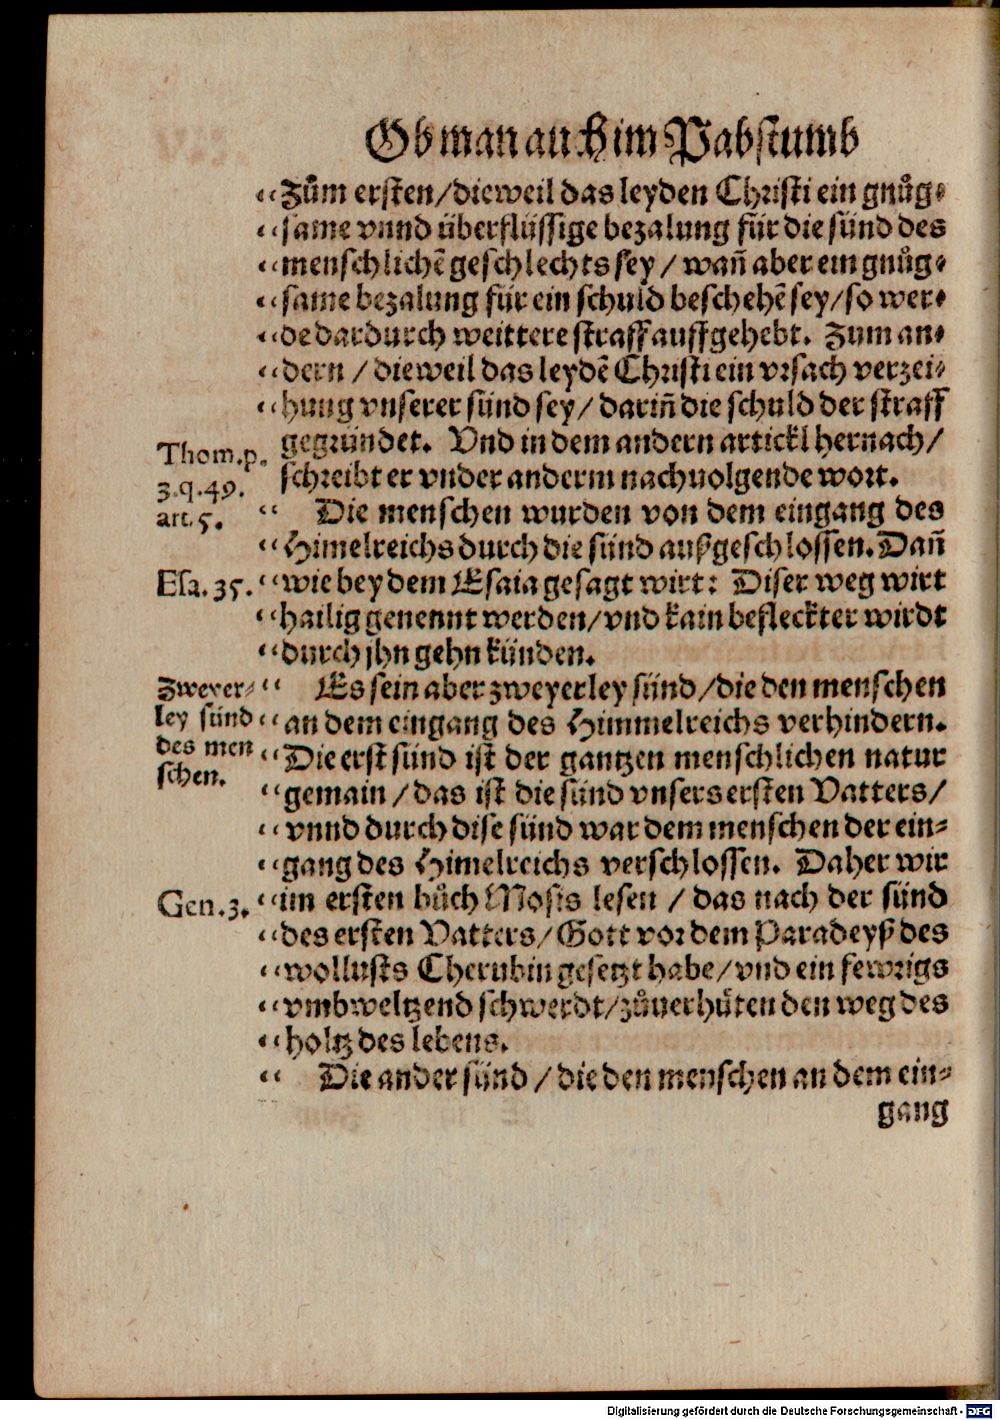 Ob man auch im Pabstumb
“Zům ersten/dieweil das leyden Christi ein gnůg⸗
“same vnnd überflüssige bezalung für die sünd des
“menschlichē geschlechts sey / wañ aber ein gnůg⸗
“same bezalung für ein schuld beschehē sey/so wer⸗
“de dardurch weittere straff auffgehebt. Zum an⸗
“dern / dieweil das leydē Christi ein vrsach verzei⸗
“hung vnserer sünd sey/ dariñ die schuld der straff
gegründet. Vnd in dem andern artickl hernach/
schreibt er vnder anderm nachuolgende wort.
Thom.p.
3.q.49.
art.5.
“ Die menschen wurden von dem eingang des
“Himelreichs durch die sünd außgeschlossen. Dañ
Esa.35.
“wie bey dem Esaia gesagt wirt: Diser weg wirt
“hailig genennt werden/vnd kain befleckter wirdt
“durch jhn gehn künden.
Zweyer⸗
ley sünd
des men
schen.
“ Es sein aber zweyerley sünd/die den menschen
“an dem eingang des Himmelreichs verhindern.
“Die erst sünd ist der gantzen menschlichen natur
“gemain/das ist die sünd vnsers ersten Vatters/
“vnnd durch dise sünd war dem menschen der ein⸗
“gang des Himelreichs verschlossen. Daher wir
Gen.3.
“im ersten bůch Mosis lesen / das nach der sünd
“des ersten Vatters/Gott vor dem Paradeyß des
“wollusts Cherubin gesetzt habe/vnd ein fewrigs
“vmbweltzend schwerdt/zůuerhůten den weg des
“holtz des lebens.
“ Die ander sünd /die den menschen an dem ein⸗
gang
Digitalisierung gefördert durch die Deutsche Forschungsgemeinschaft - DFG